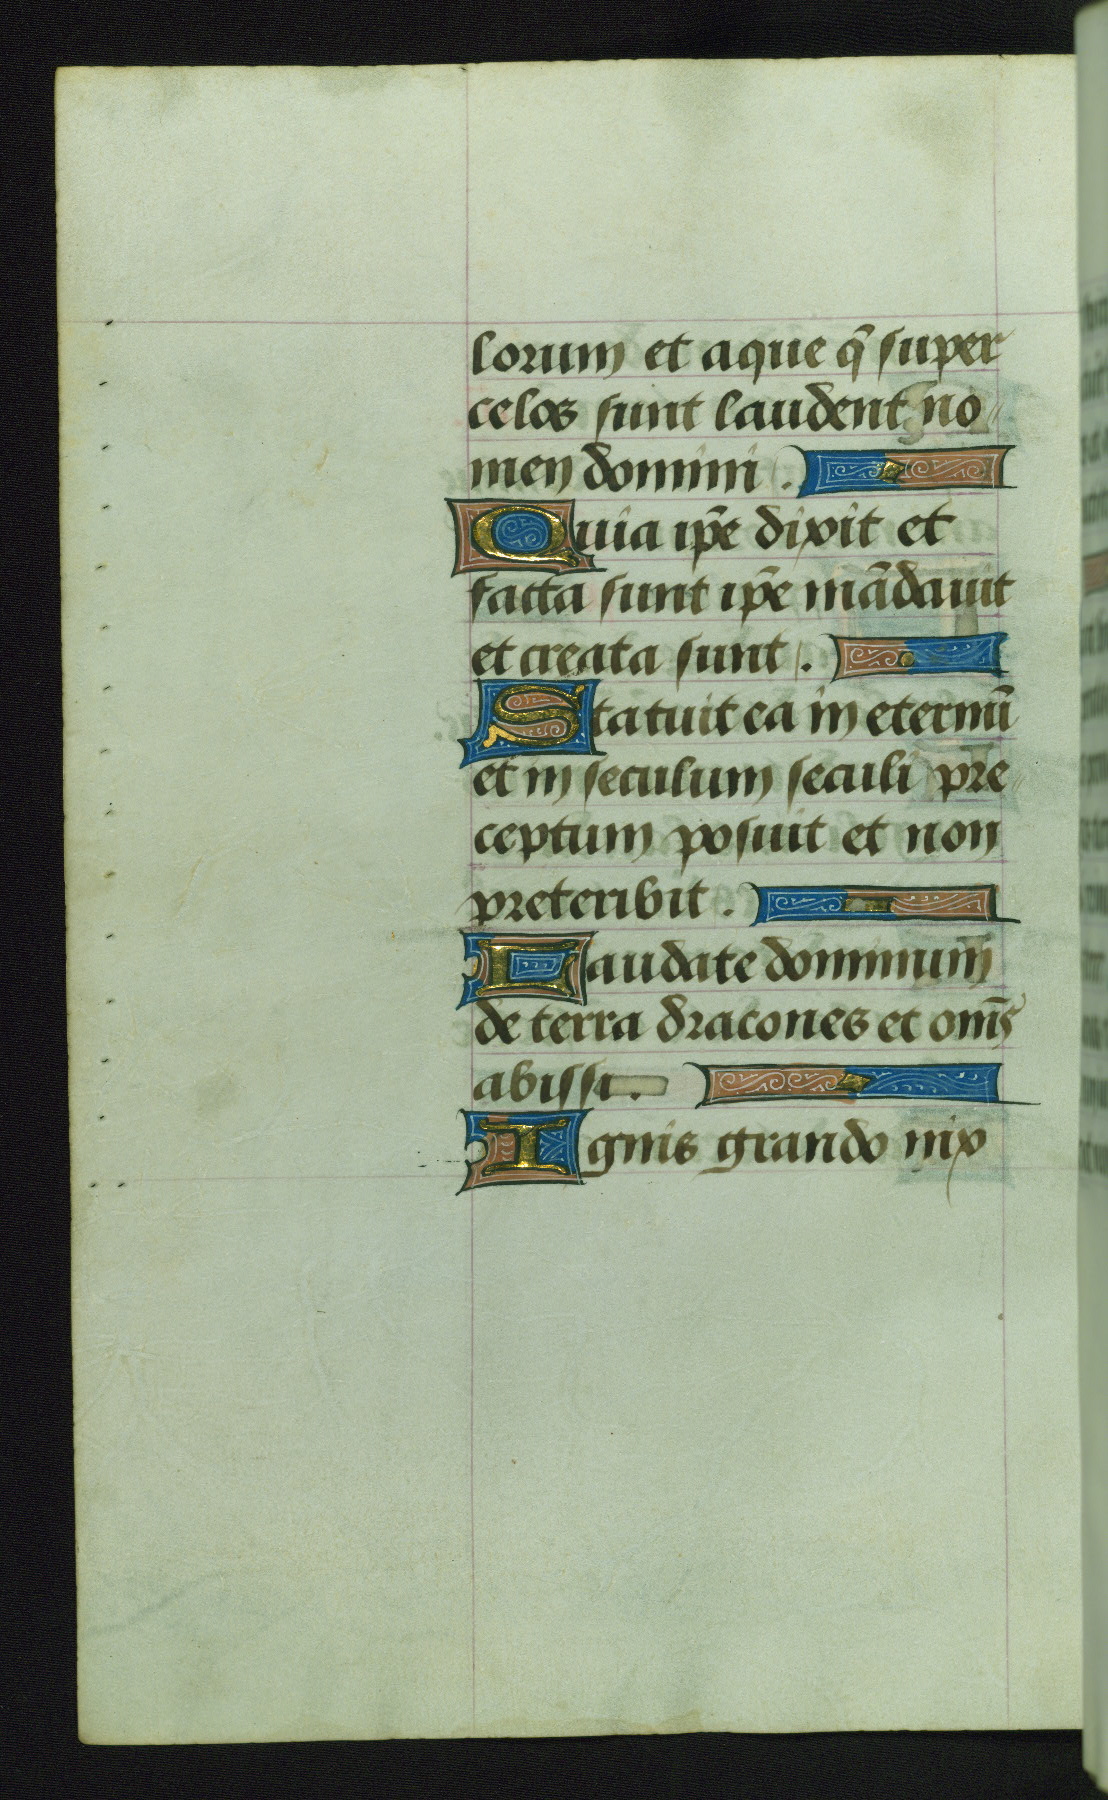 lorum et aque q̄ super
celos sunt laudent no
men domini .
Quia ip̄e dixit et
facta sunt ip̄e mādauit
et creata sunt .
Statuit ea in eternū
et in seculum seculi pre
ceptum posuit et non
preteribit .
Laudate dominum
de terra dracones et om̄s
abissi .
Ignis grando nix